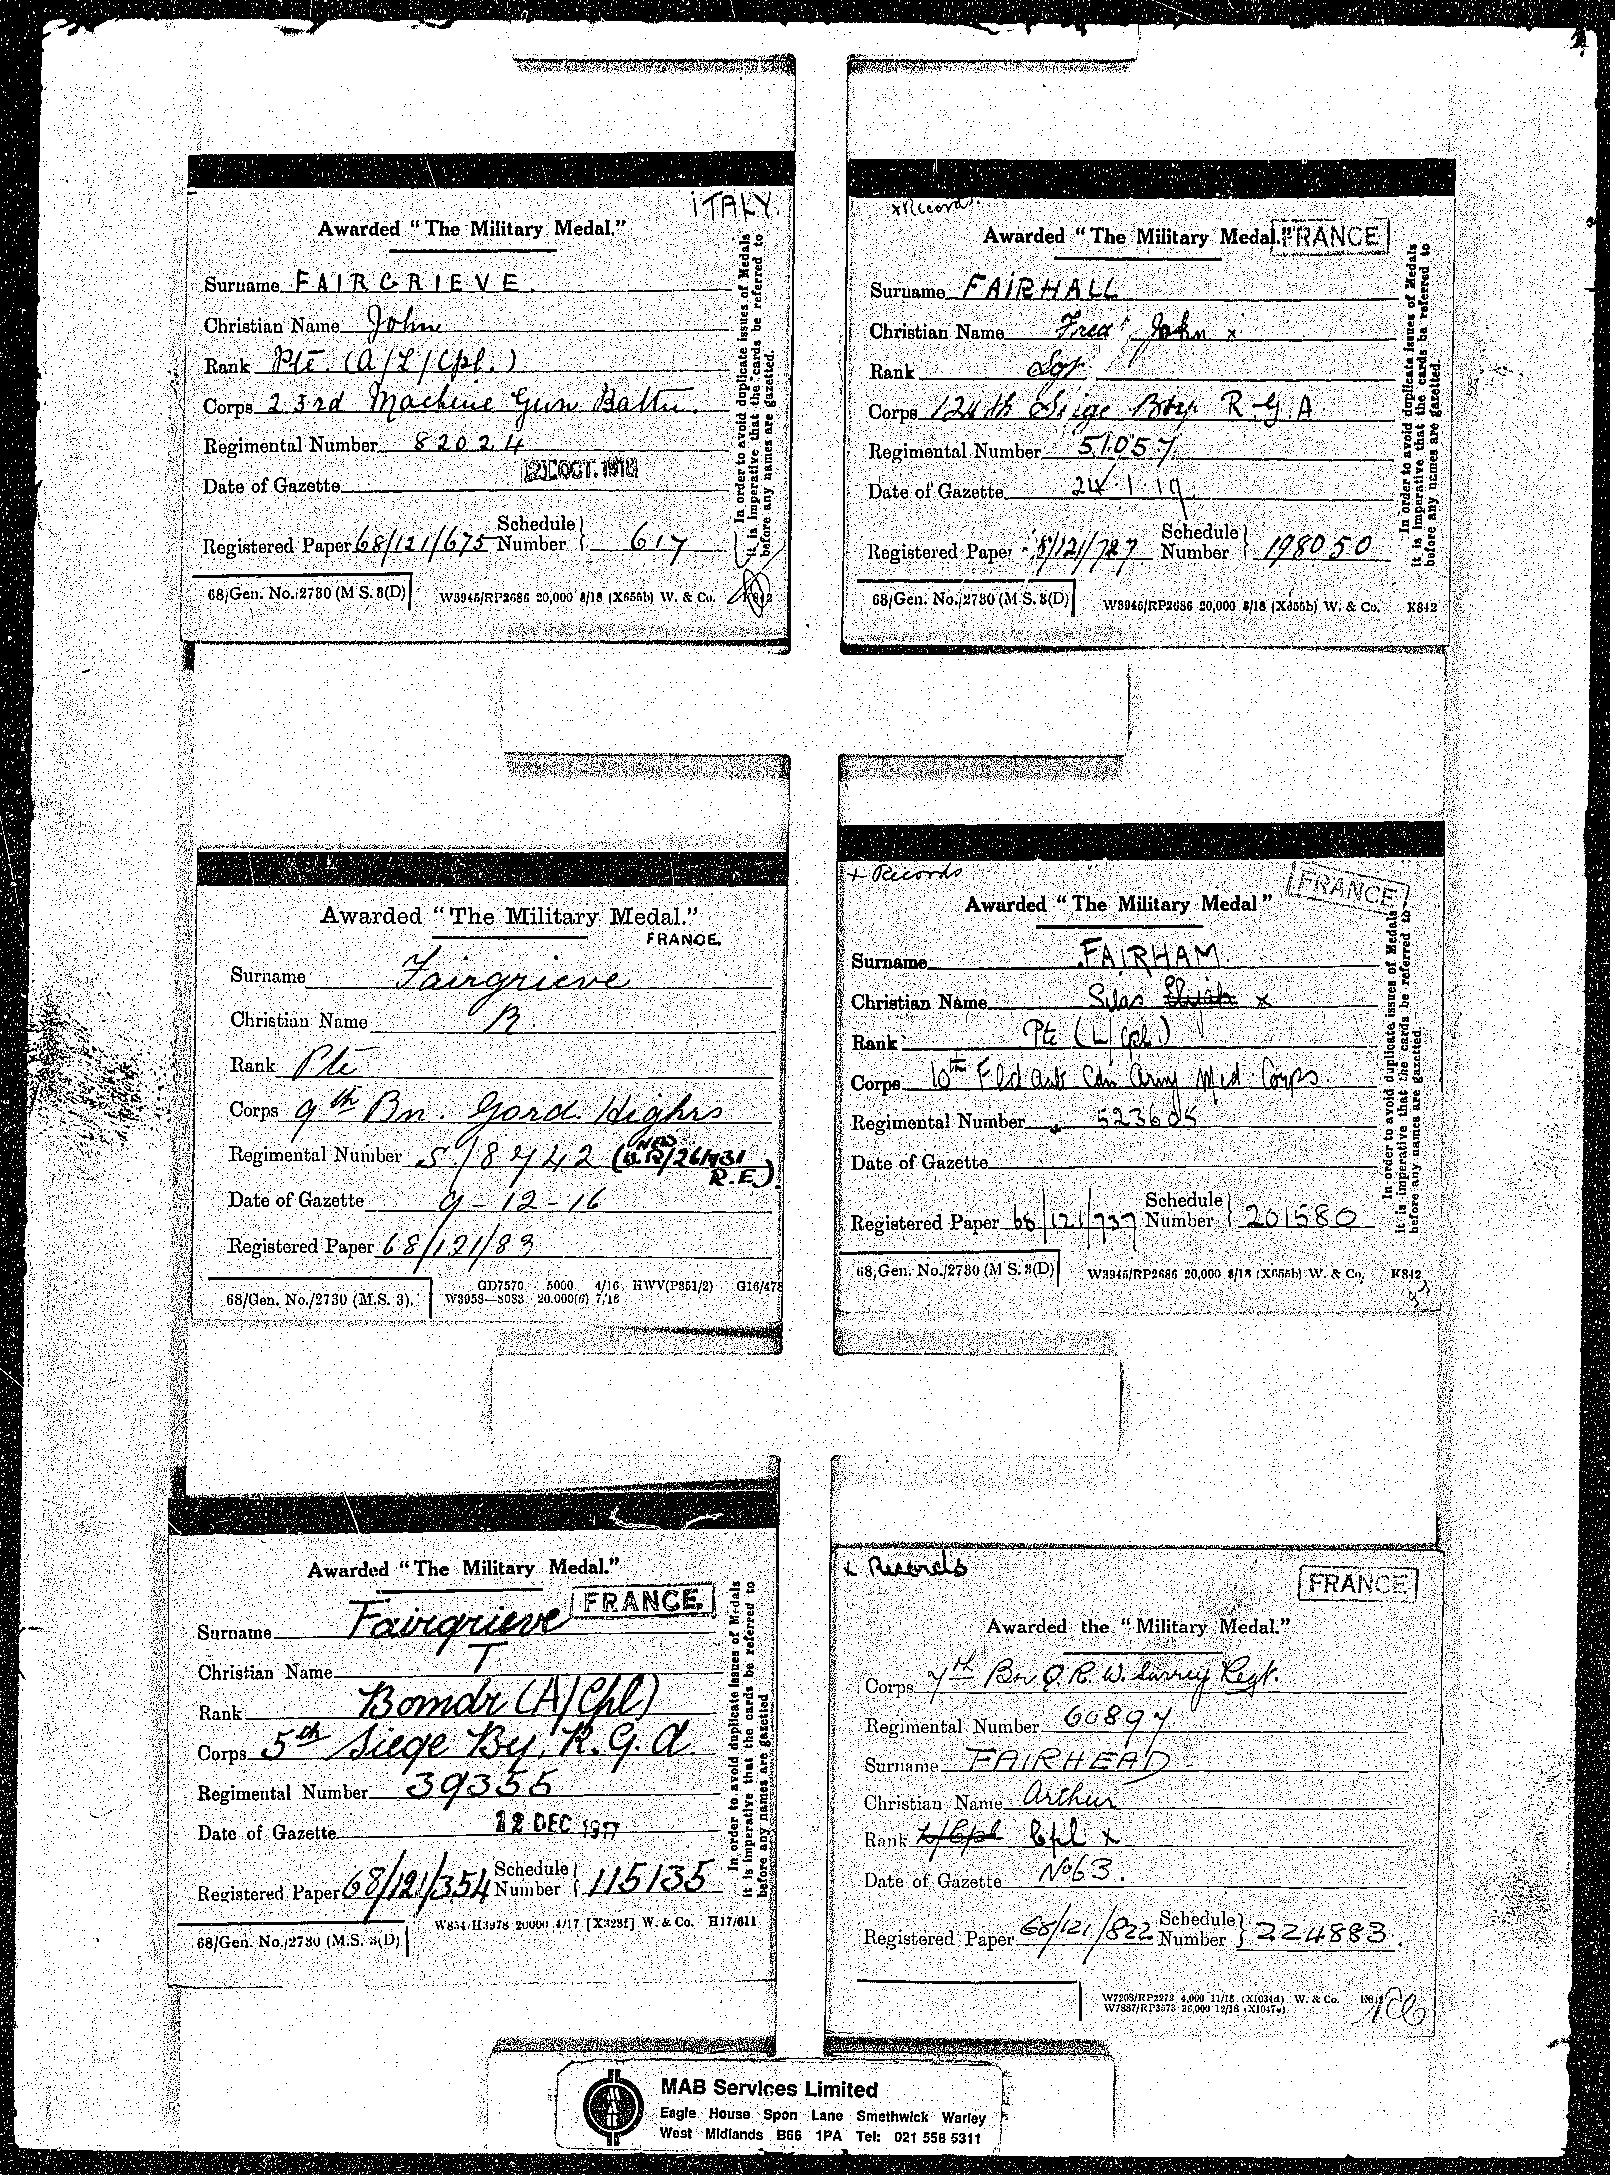 ITALY.
Awarded "The Military Medal."
Surname FAIRGRIEVE.
Christian Name John
Rank Pte. (A/L/Cpl.)
Corps 23rd Machine Gun Battn.
Regimental Number 82024
OCT. 1918
Date of Gazette
Registered Paper 68/121/675 Schedule Number } 617
68/Gen. No./2730 (M S. 3(D) W3946/RP2686 20,000 8/18 (X655b) W. & Co. K842
In order to avoid duplicate issues of Medals
it is imperative that the cards be referred to
before any names are gazetted.
Awarded "The Military Medal."
FRANCE.
Surname Fairgrieve
Christian Name R.
Rank Pte
Corps 9th Bn. Gord. Highrs
Regimental Number S/8742 (NEW W.R/261431
R.E.)
Date of Gazette 9-12-16
Registered Paper 68/121/83
68/Gen. No./2730 (M.S. 3). GD7570 5000 4/16 HWV(P351/2) G16/478
20.000(6) 7/16
Awarded "The Military Medal."
FRANCE.
Surname Fairgrieve
Christian Name T
Rank Bomdr (A/Cpl)
Corps 5th Siege By. R.G.A.
Regimental Number 39355
Date of Gazette 12 DEC 1917
Registered Paper 68/121/354 Schedule Number { 115135
68/Gen. No./2730 (M.S. 3(D) 20000 4/17 [X328f] W. & Co. H17/611
In order to avoid duplicate issues of Medals
it is imperative that the cards be referred to
before any names are gazetted
x Record.
Awarded "The Military Medal." FRANCE
Surname FAIRHALL
Christian Name Fred John x
Rank
Corps 124th Siege Bty R G A
Regimental Number 51057
Date of Gazette 24.1.19
Registered Paper 8/121/727 Schedule Number { 198050
68/Gen. No./2730 (M S. 3(D) W3946/RP2686 20,000 8/18 (X655b) W. & Co. K842
In order to avoid duplicate issues of Medals
it is imperative that the cards be referred to
before any names are gazetted.
+ Records
FRANCE
Awarded "The Military Medal"
Surname FAIRHAM
Christian Name Silas Elijah x
Rank Pte (L/Cpl)
Corps 10th Fld Amb Can Army Med Corps
Regimental Number 523605
Date of Gazette
Registered Paper 68/121/737 Schedule Number { 201580
68/Gen. No./2730 (M S. 3(D) W3946/RP2686 20,000 8/18 (X655b) W. & Co, K842
In order to avoid duplicate issues of Medals
it is imperative that the cards be referred to
before any names are gazetted.
x Records
FRANCE
Awarded the "Military Medal."
Corps 7th Bn Q. R. W. Surrey Regt.
Regimental Number 60897
Surname FAIRHEAD
Christian Name Arthur
Rank L/Cpl Cpl x
Date of Gazette No 63.
Registered Paper 68/121/822 Schedule Number } 224883.
4,000 11/18 (X1034d) W. & Co.
36,000 12/18
MAB Services Limited
Eagle House Spon Lane Smethwick Warley
West Midlands B66 1PA Tel: 021 558 5311